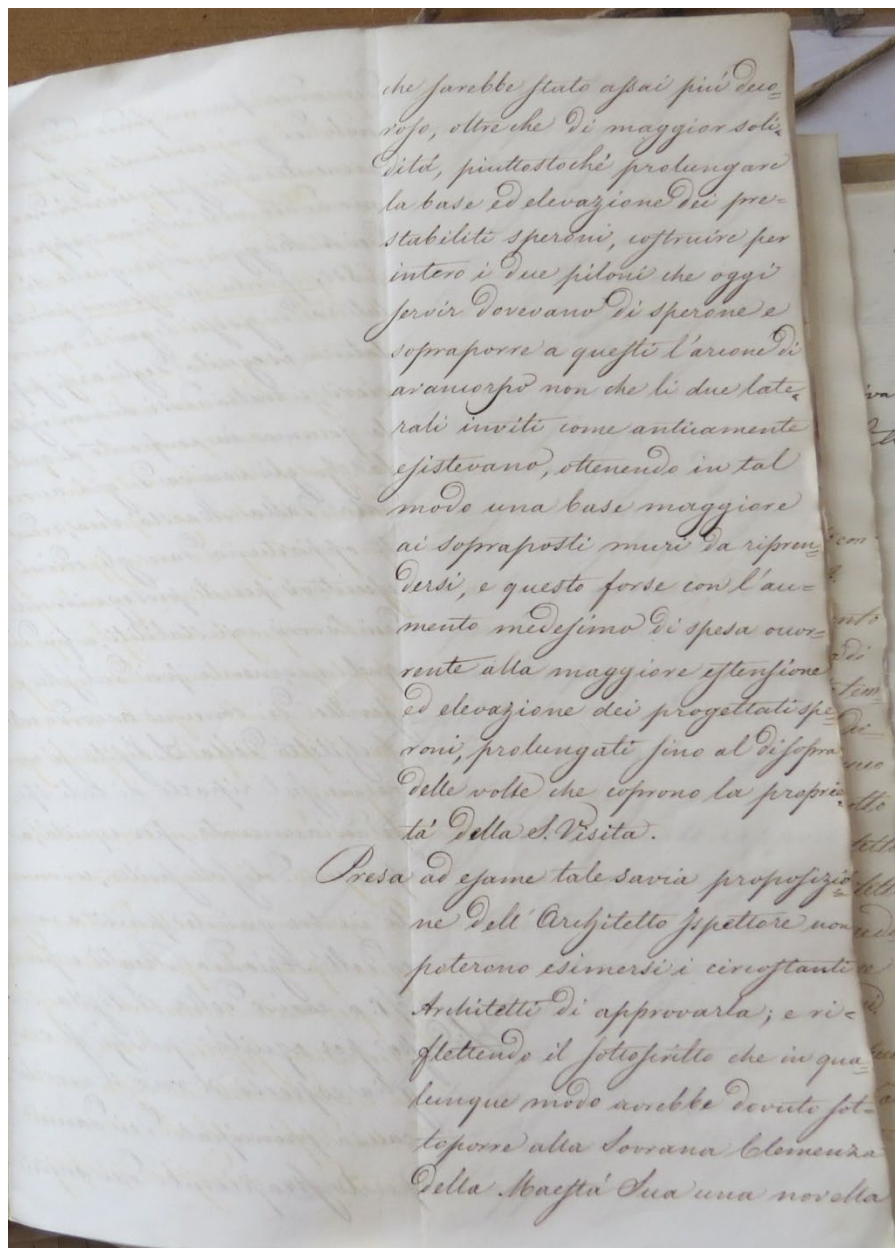 che sarebbe stato assai piú deco=
roso, oltre che di maggior soli=
ditá, piuttostoché prolungare
la base ed elevazione dei pre=
stabiliti speroni, costruire per
intero i due piloni che oggi
servir dovevano di sperone e
sopraporre a questi l'arcone di
avancorpo non che li due late=
rali inviti come anticamente
esistevano, ottenendo in tal
modo una base maggiore
ai sopraposti muri da ripren=
dersi, e questo forse con l'au=
mento medesimo di spesa occor=
rente alla maggiore estensione
ed elevazione dei progettati spe=
roni, prolungati sino al disopra
delle volte che coprono la proprie=
tá della S. Visita.
Presa ad esame tale savia proposizio=
ne dell'Architetto Ispettore non
poterono esimersi i circostanti
Architetti di approvarla; e ri=
flettendo il sottoscritto che in qua=
lunque modo avrebbe dovuto sot=
toporre alla Sovrana Clemenza
della Maestá Sua una novella